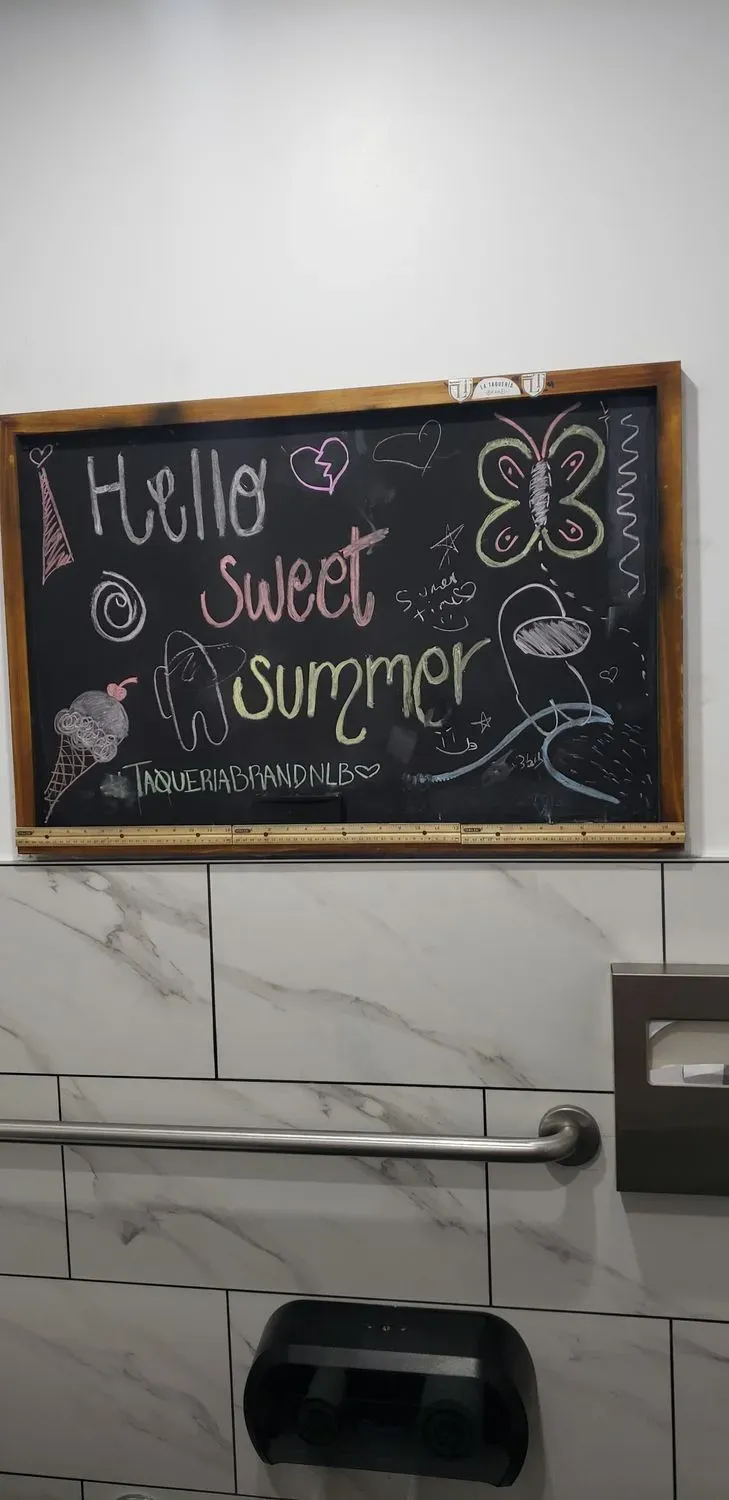 LA TAQUERIA
Hello
sweet
summer
time
TAQUERIABRANDNLB